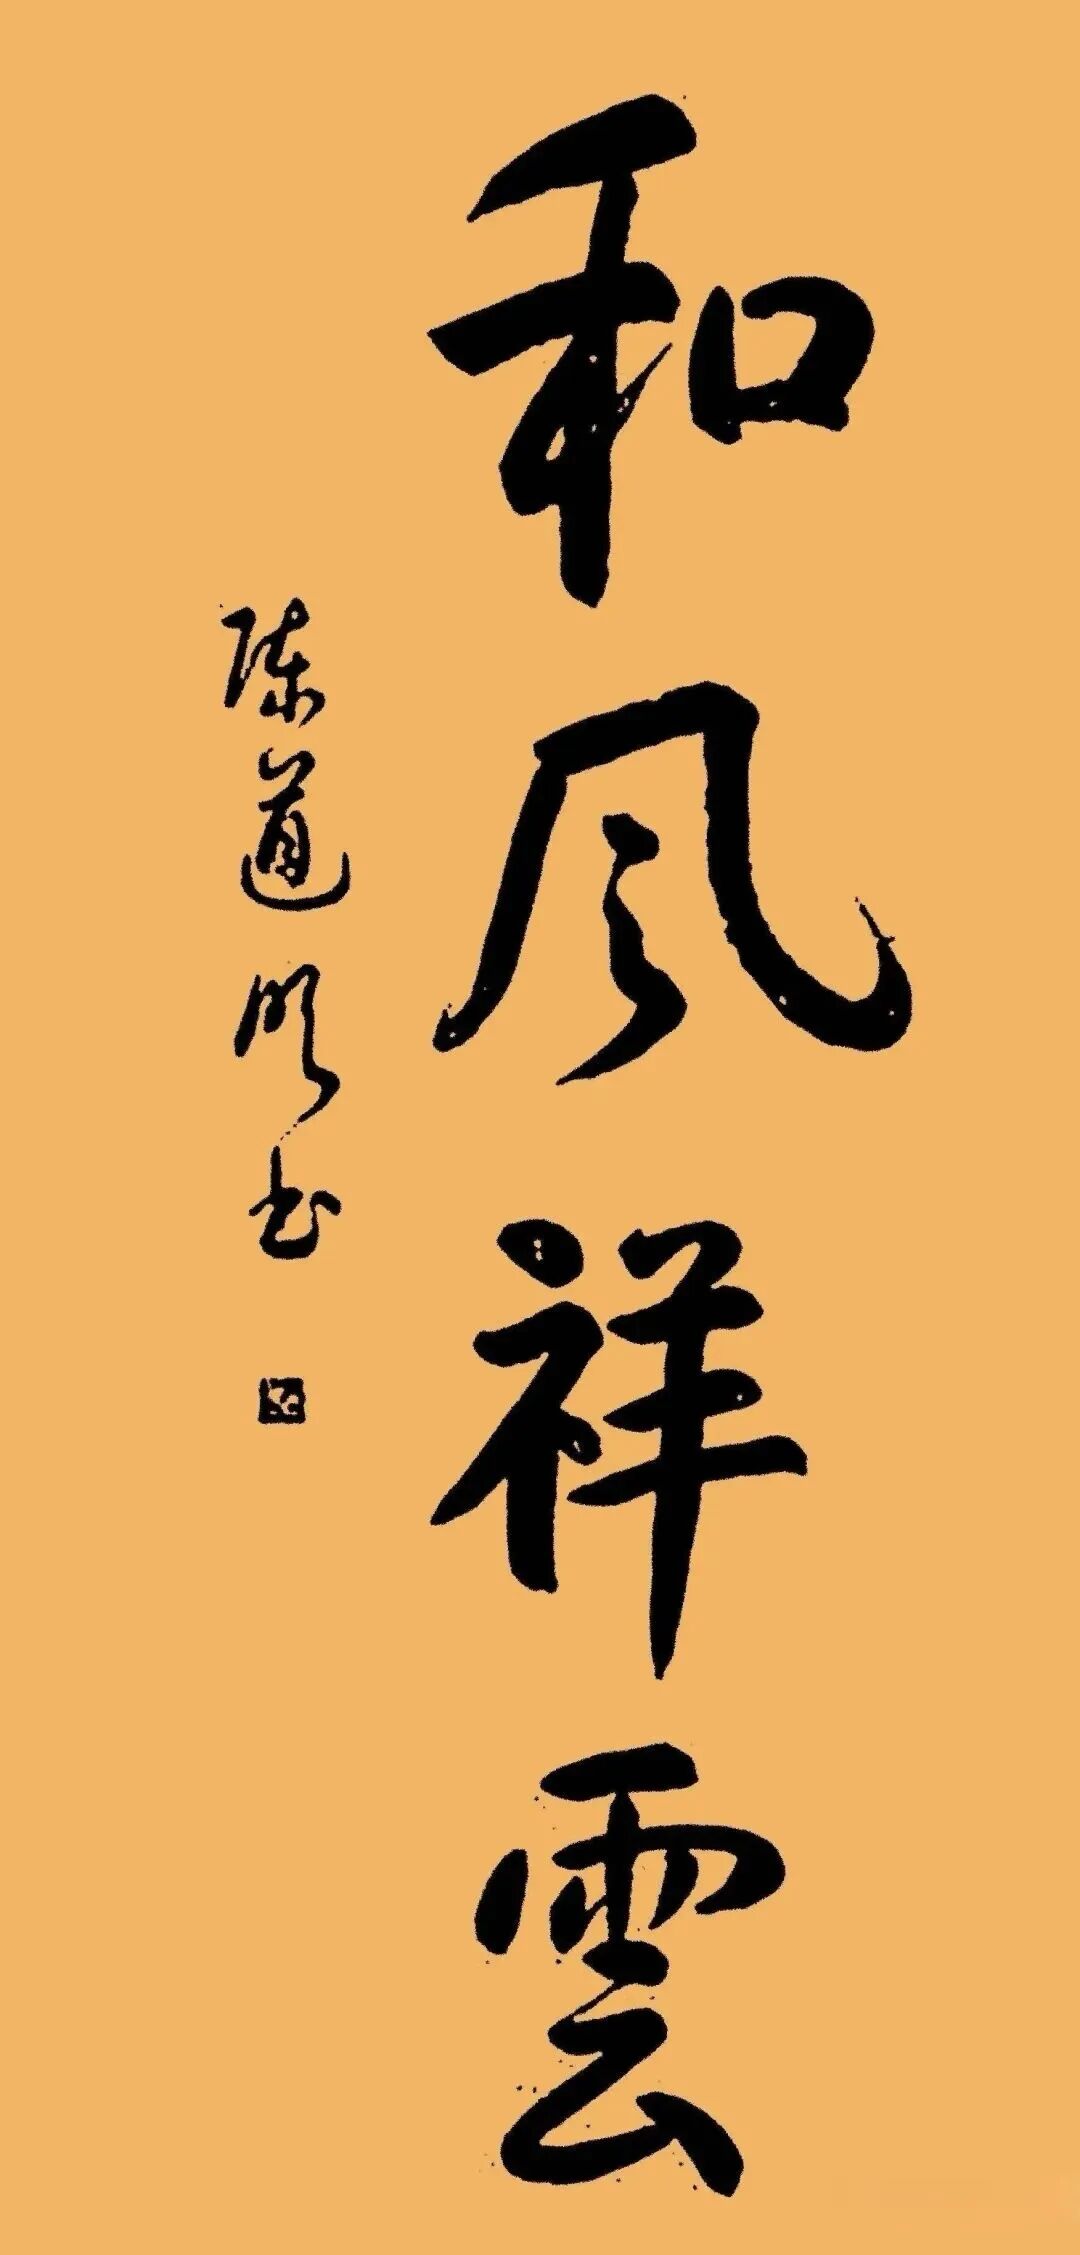 和风祥雲
陈道明书